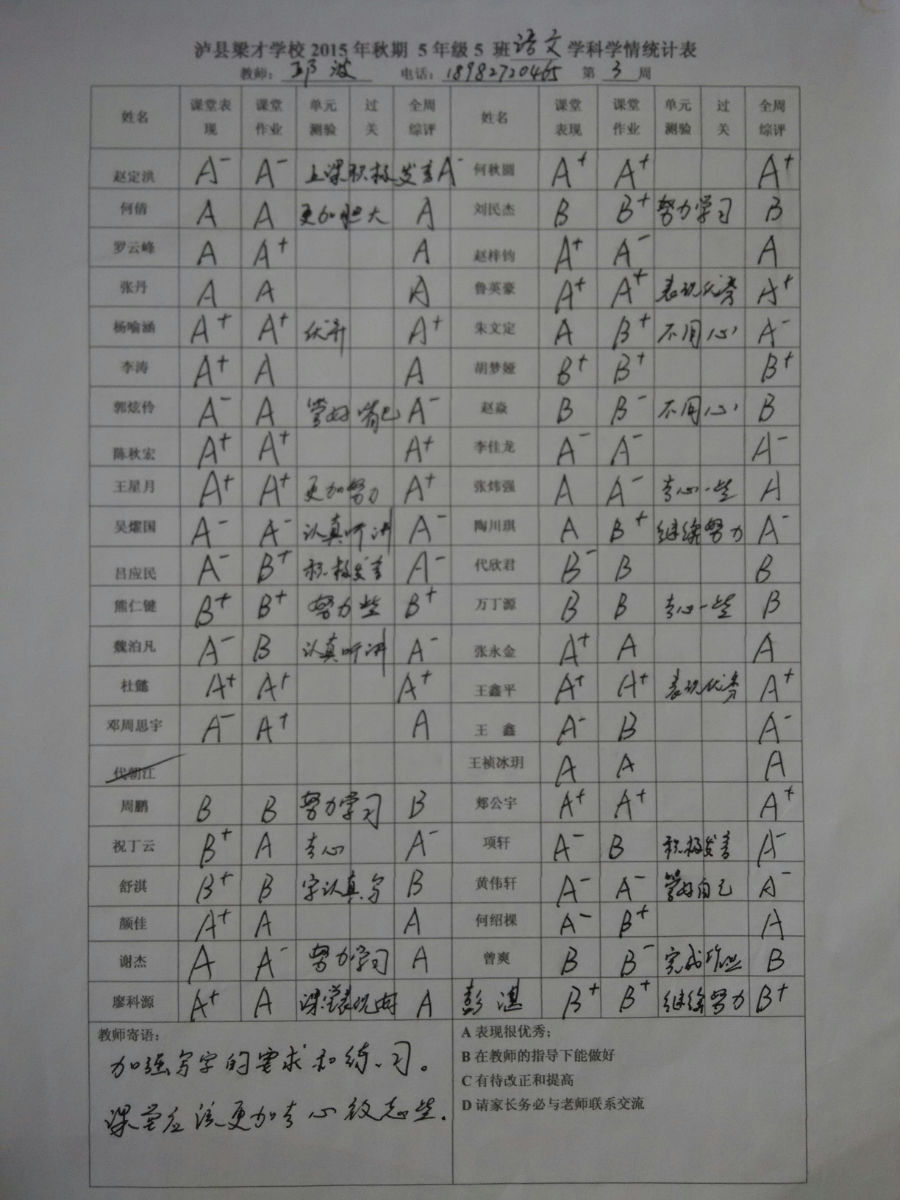 泸县梁才学校2015年秋期 5年级5 班语文学科学情统计表
教师：邓波 电话：18982720465 第3周
姓名 课堂表现 课堂作业 单元测验 过关 全周综评 姓名 课堂表现 课堂作业 单元测验 过关 全周综评
赵定洪 A- A- 上课积极发言 A- 何秋圆 A+ A+ A+
何倩 A A 更加胆大 A 刘民杰 B B+ 努力学习 B
罗云峰 A A+ A 赵梓钧 A+ A- A
张丹 A A A 鲁英豪 A+ A+ 表现优秀 A+
杨喻涵 A+ A+ 优秀 A+ 朱文定 A B+ 不用心 A-
李涛 A+ A A 胡梦娅 B+ B+ B+
郭炫伶 A- A 管好嘴巴 A- 赵焱 B B- 不用心 B
陈秋宏 A+ A+ A+ 李佳龙 A- A- A-
王星月 A+ A+ 更加努力 A+ 张炜强 A A- 专心一些 A
吴燿国 A- A- 认真听讲 A- 陶川琪 A B+ 继续努力 A-
吕应民 A- B+ 积极发言 A- 代欣君 B- B B
熊仁键 B+ B+ 努力些 B+ 万丁源 B B 专心一些 B
魏泊凡 A- B 认真听讲 A- 张永金 A+ A A
杜懿 A+ A+ A+ 王鑫平 A+ A+ 表现优秀 A+
邓周思宇 A- A+ A 王 鑫 A- B A-
代朝江 王祯冰玥 A A A
周鹏 B B 努力学习 B 郑公宇 A+ A+ A+
祝丁云 B+ A 专心 A- 项轩 A- B 积极发言 A-
舒淇 B+ B 字认真写 B 黄伟轩 A- A- 管好自己 A-
颜佳 A+ A A 何绍棵 A- B+ A
谢杰 A A- 努力学习 A 曾爽 B B- 完成作业 B
廖科源 A+ A 课堂表现好 A 彭湛 B+ B+ 继续努力 B+
教师寄语：
加强写字的要求和练习。
课堂应该更加专心致志些.
A 表现很优秀；
B 在教师的指导下能做好
C 有待改正和提高
D 请家长务必与老师联系交流